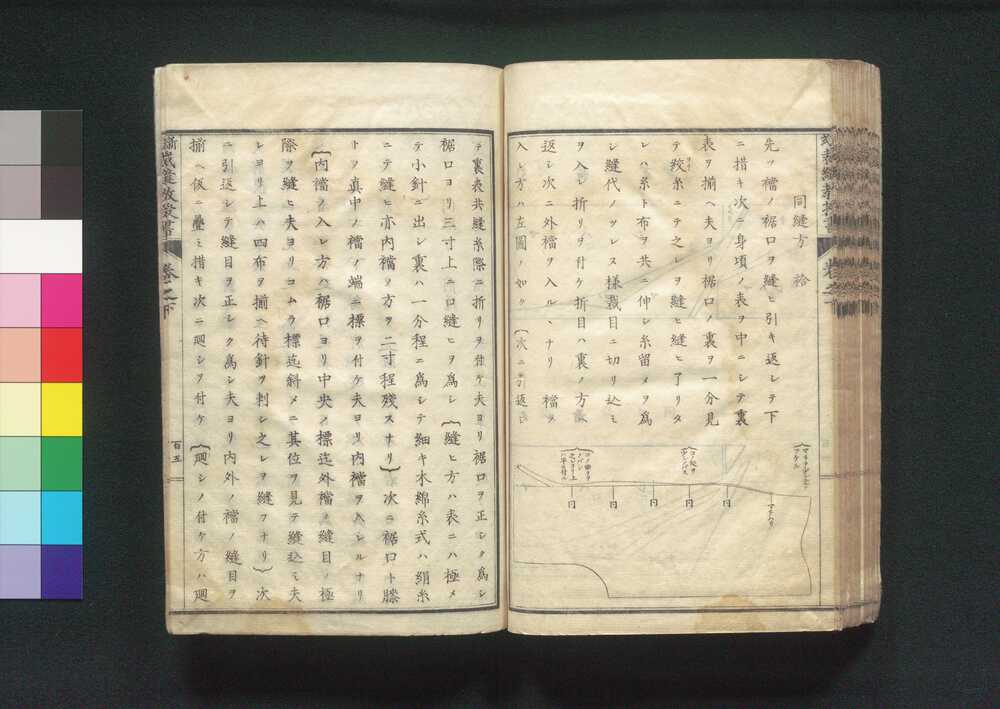 同縫方 袷
先ツ襠ノ裾口ヲ縫ヒ引キ返シテ下
ニ措キ次ニ身頃ノ表ヲ中ニシテ裏
表ヲ揃ヘ夫ヨリ裾口ノ裏ヲ一分見
テ絞糸ニテ之レヲ縫ヒ縫ヒ了リタ
レハ糸ト布ヲ共ニ伸シ糸留メヲ為
シ縫代ノツレヌ様裁目ニ切リ込ミ
ヲ入レ折リヲ付ケ折目ハ裏ノ方ヘ
返シ次ニ外襠ヲ入ルヽナリ 襠ヲ
入レ方ハ左圖ノ如ク (次ニ引返シ
テ裏表共縫糸際ニ折リヲ付ケ夫ヨリ裾口ヲ正シク為シ
裾口ヨリ三寸上ニ口縫ヒヲ為シ(縫ヒ方ハ表ニハ極メ
テ小針ニ出シ裏ハ一分程ニ為シテ細キ木綿糸式ハ絹糸
ニテ縫ヒ亦内襠ノ方ヲ二寸程残スナリ)次ニ裾口ト膝
トノ真中ノ襠ノ端ニ標ヲ付ケ夫ヨリ内襠ヲ入レルナリ
(内襠ノ入レ方ハ裾口ヨリ中央ノ標迄外襠ノ縫目ノ極
際ヲ縫ヒ夫ヨリコムラ標迄斜メニ其位ヲ見テ縫込ミ夫
レヨリ上ハ四布ヲ揃ヘ待針ヲ刺シ之レヲ縫フナリ)次
ニ引返シテ縫目ヲ正シク為シ夫ヨリ内外ノ襠ノ縫目ヲ
揃ヘ仮ニ疊ミ措キ次ニ廻シヲ付ケ(廻シノ付ケ方ハ廻
卷之下
百五